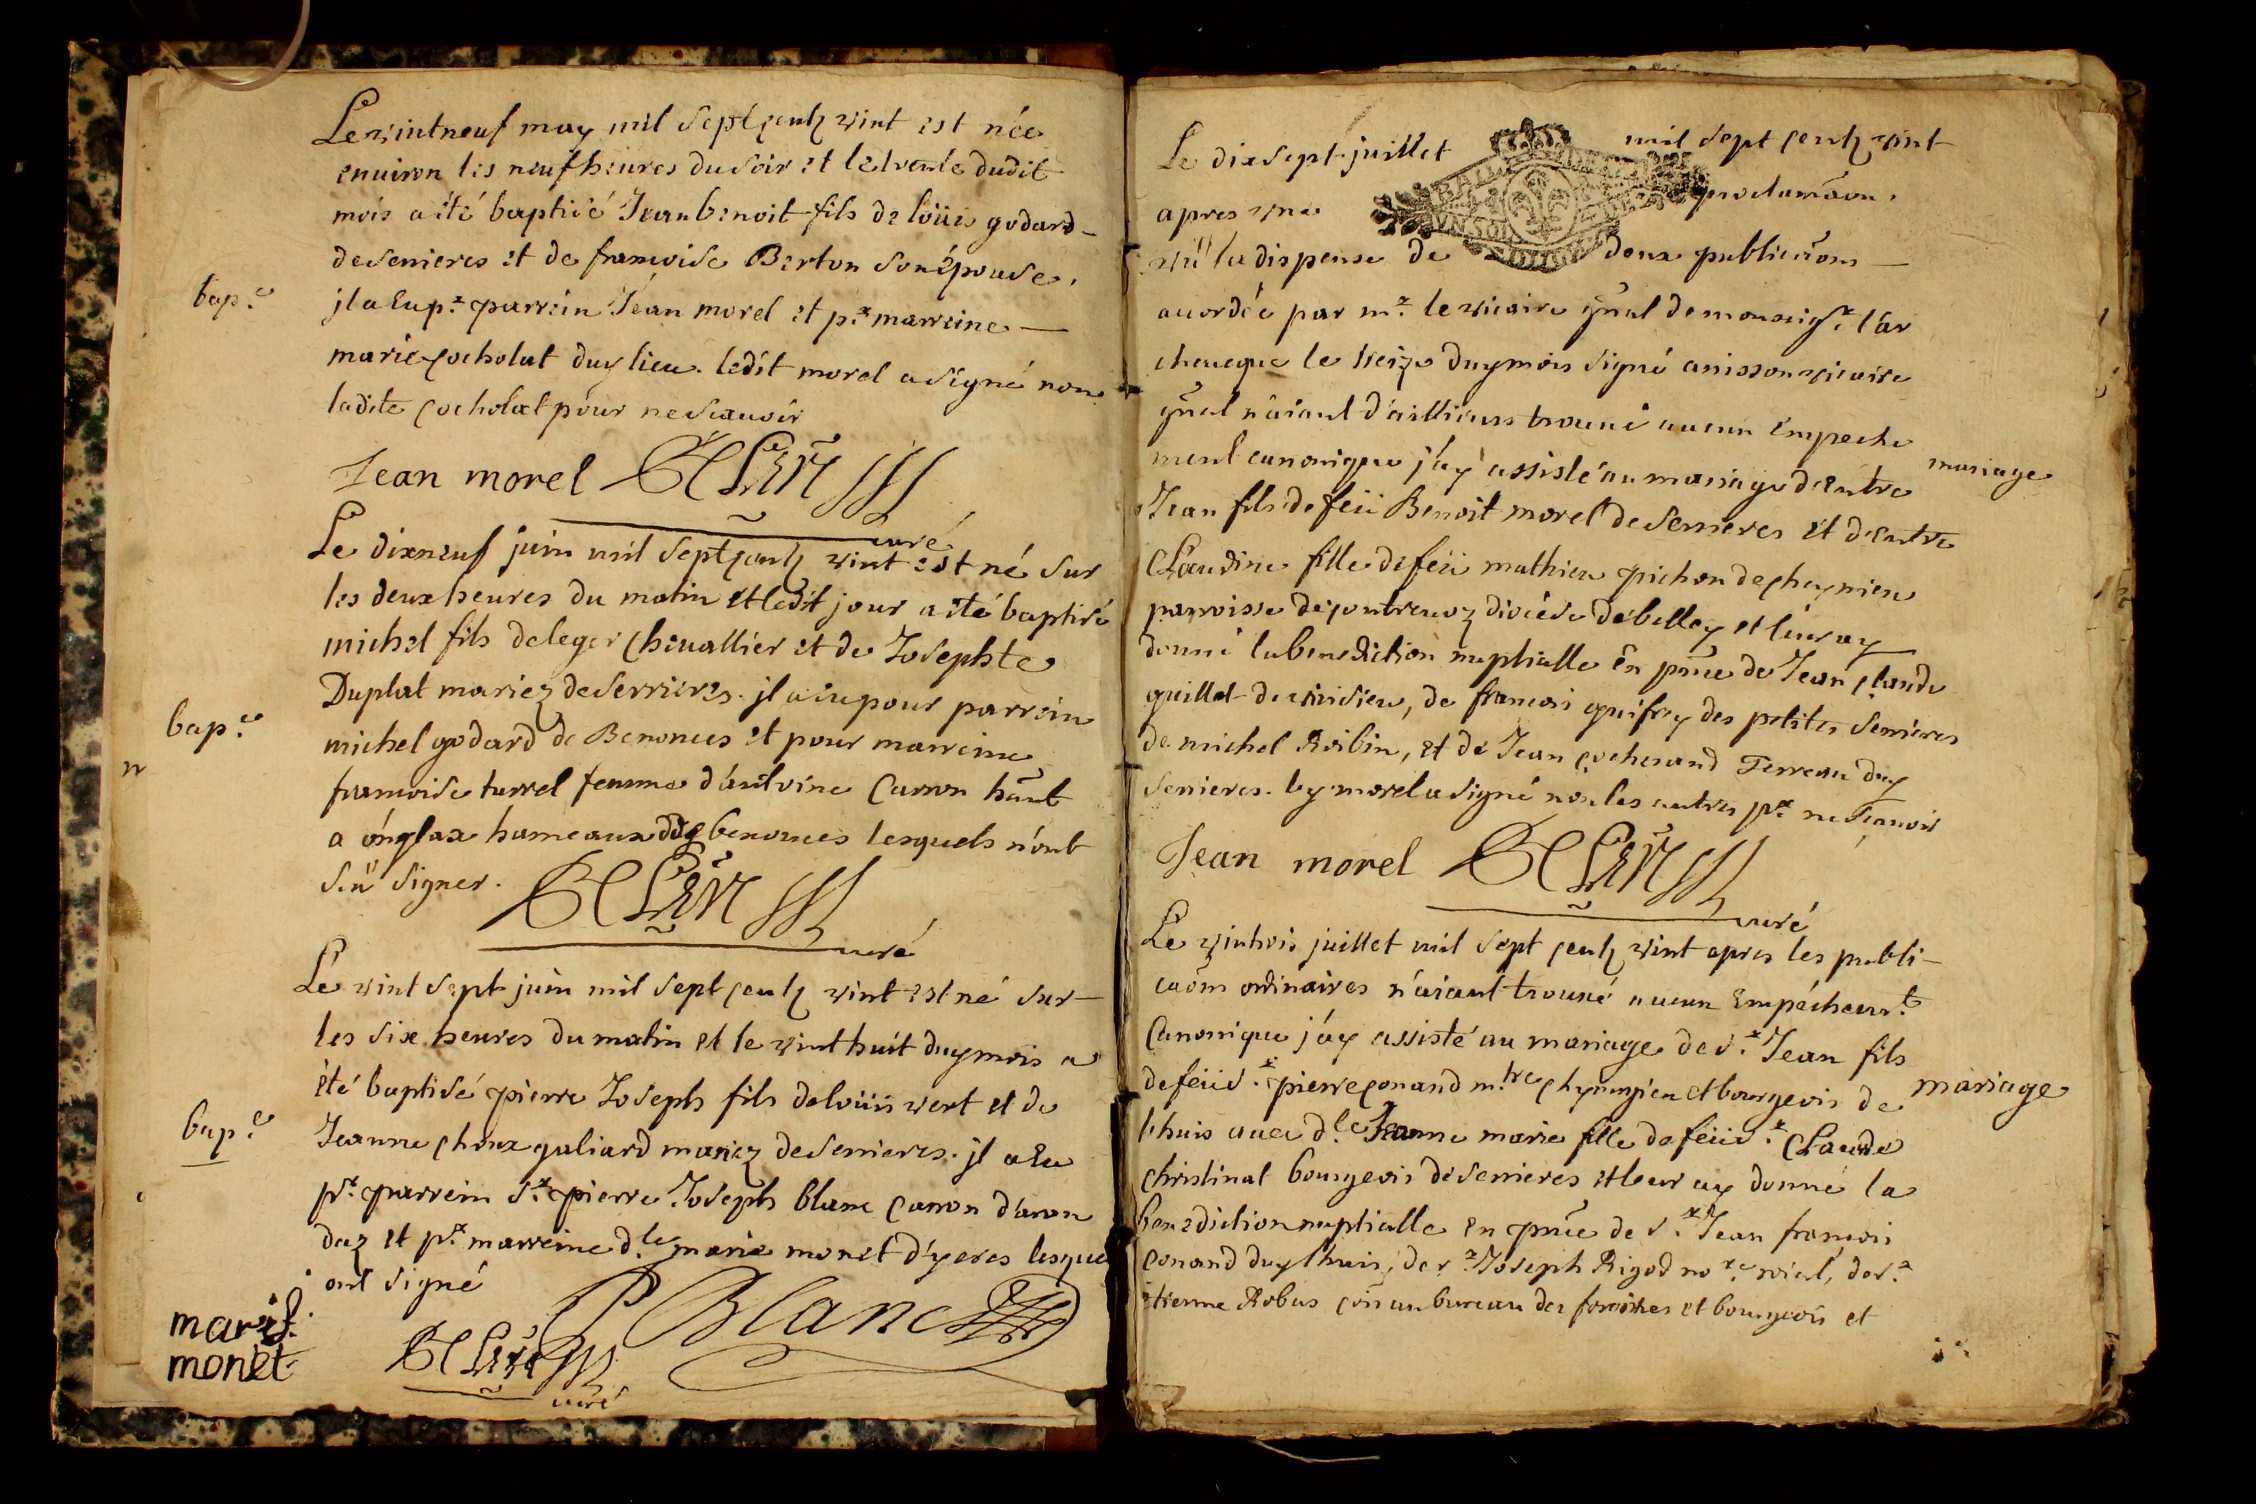 Le vintneuf may mil sept centz vint est née
environ les neuf heures du soir et le trente dudit
mois a été baptisé Jean benoit fils de loüis godard
de serrieres et de francoise Berton son épouse.
bap.e
jl a Eu p.r parrein Jean morel et p.r marreine
marie cocholat duy lieu. ledit morel a signé non
ladite cocholat pour ne scavoir
Jean morel
curé
Le dixneuf juin mil sept centz vint est né sur
les deux heures du matin et ledit jour a été baptisé
michel fils de leger chevallier et de Josephte
Duplat mariez de serrieres. jl a eu pour parrein
bap.e
michel godard de Benonces et pour marreine
francoise turrel femme d'antoine Carron hãnt
a onglax hameaux de benonces lesquels n'ont
sçu signer.
curé
Le vint sept juin mil sept centz vint est né sur
les six heures du matin et le vint huit duy mois a
été baptisé pierre Joseph fils de loüis vert et de
bap.e
Jeanne choux galiard mariez de serrieres. jl a Eu
p.r parrein s.r pierre Joseph blanc Carron d'aran
daz et p.r marreine d.le marie monet d'yeres lesquels
ont signé
marie
monet
P Blanc
curé
Le dix sept juillet mil sept centz vint
apres vne proclamãon.
vü la dispense de deux publicãons
accordée par m.r le vicaire gñal de monseig.r l'ar
cheveque le treize duy mois signé anisson vicaire
gñal n'aiant d'aillieurs trouué aucun Empeche
ment canonique j'ay assisté au mariage d'entre
mariage
Jean fils de feü Benoit morel de serrieres et d'entre
Claudine fille de feü mathieu pichon de cheynieu
parroisse de contrevoz diocése de belley et leur ay
donné la benediction nuptialle en pñce de Jean claude
guillet de vuisieu, de francois guifrey des petites serrieres
de michel Robin, et de Jean cochenand Terreau duy
serrieres. ley morel a signé non les autres p.r ne scavoir
Jean morel
curé
Le vintrois juillet mil sept centz vint apres les publi-
caõns ordinaires n'aiant trouué aucun Empéchem.t
Canonique j'ay assisté au mariage de s.r Jean fils
de feü s.r pierre conand m.tre chyrurgien et bourgeois de
mariage
l'huis avec d.le Jeanne marie fille de feü s.r Claude
christinat bourgeois de serrieres et leur ay donné la
benediction nuptialle en pñce de s.r Jean francois
conand duy lhuis, de s.r Joseph Rigod no.re roial, de s.r
etienne Robus coñ au bureau des et bourgeois et